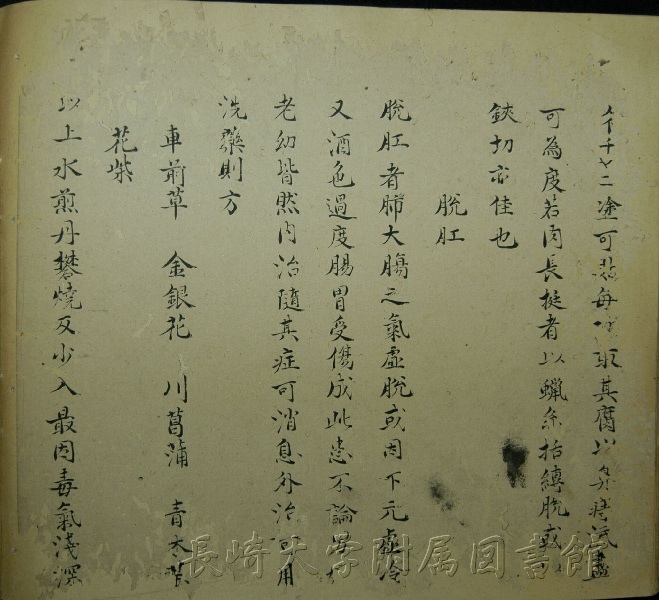 塗可 每 取其腐以 盡
可為度若肉長挺者以蝋糸括縛脫或
鋏切亦佳也
脫肛
脫肛者肺大腸之氣虛脫或因下元虛冷
又酒色過度腸胃受傷成此患不論男女
老幼皆然內治隨其症可消息外治可用
洗藥則方
車前草 金銀花 川菖蒲 青木葉
花柴
以上水煎丹礬燒反少入最因毒氣淺深
長崎大学附属図書館